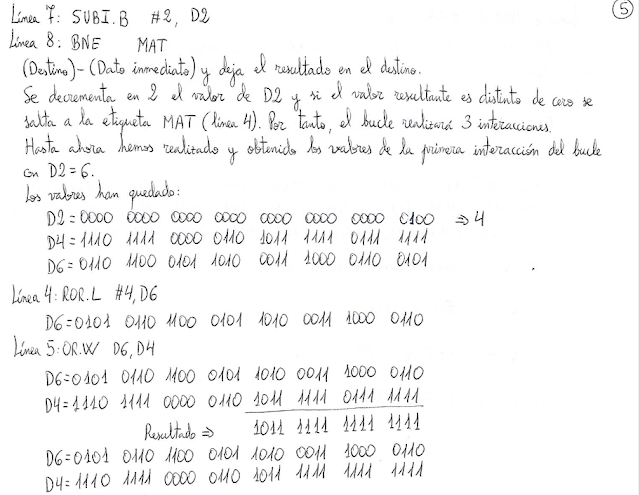 5
Línea 7: SUBI.B #2, D2
Línea 8: BNE MAT
(Destino)-(Dato inmediato) y deja el resultado en el destino.
Se decrementa en 2 el valor de D2 y si el valor resultante es distinto de cero se
salta a la etiqueta MAT (línea 4). Por tanto, el bucle realizará 3 interacciones.
Hasta ahora hemos realizado y obtenido los valores de la primera interacción del bucle
con D2=6.
Los valores han quedado:
D2=0000 0000 0000 0000 0000 0000 0000 0100 ⇒ 4
D4=1110 1111 0000 0110 1011 1111 0111 1111
D6=0110 1100 0101 1010 0011 1000 0110 0101
Línea 4: ROR.L #4, D6
D6=0101 0110 1100 0101 1010 0011 1000 0110
Línea 5: OR.W D6, D4
D6=0101 0110 1100 0101 1010 0011 1000 0110
D4=1110 1111 0000 0110 1011 1111 0111 1111
Resultado ⇒ 1011 1111 1111 1111
D6=0101 0110 1100 0101 1010 0011 1000 0110
D4=1110 1111 0000 0110 1011 1111 1111 1111